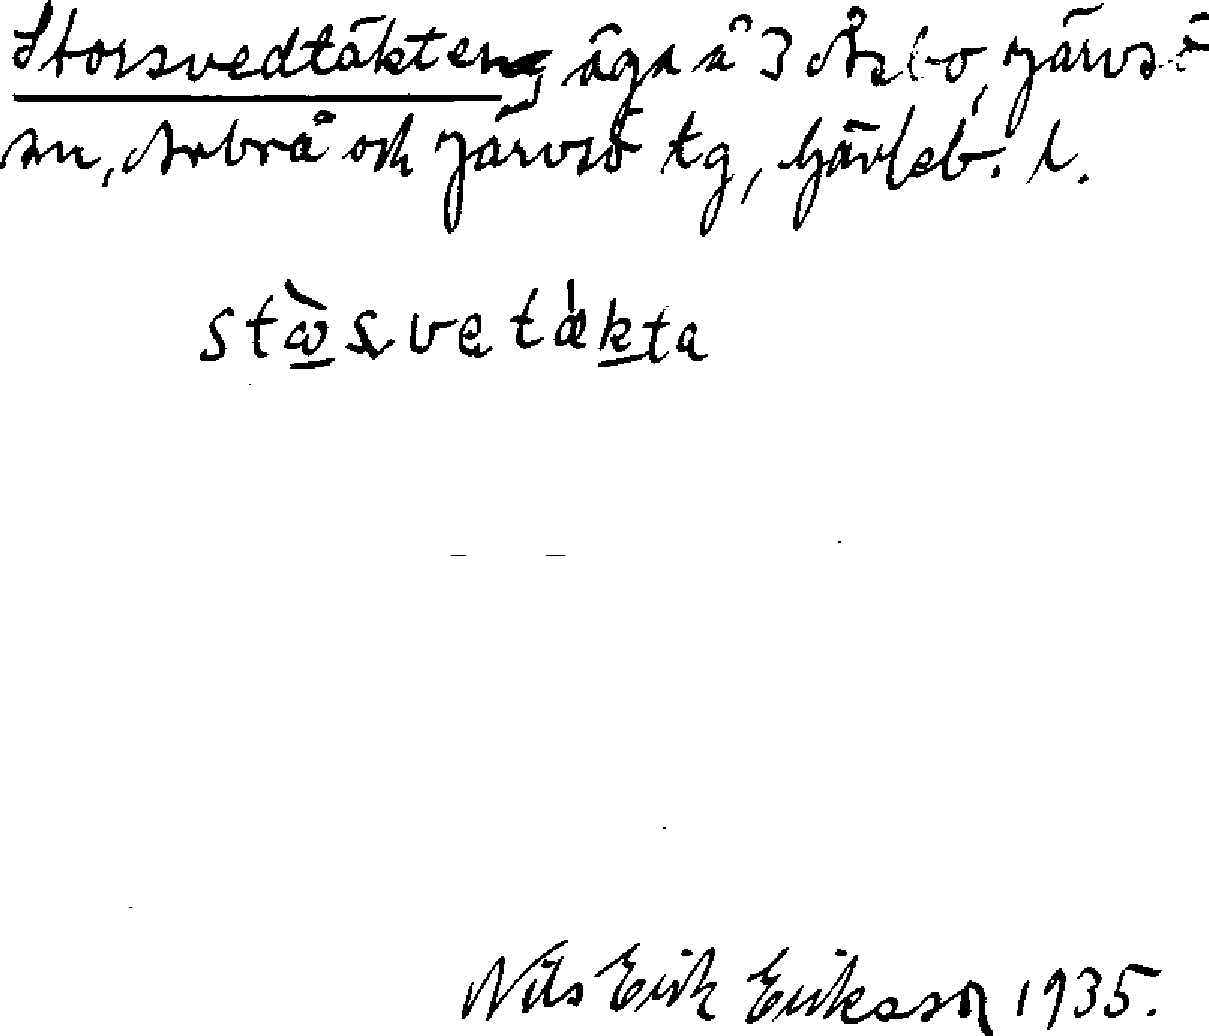 Storsvedtäkten, äga å 3 Åsbo, Järvsö
sn, Arbrå och Järvsö tg, Gävleb. l.
stɷ̀svetǽkta
Nils Erik Eriksson 1935.